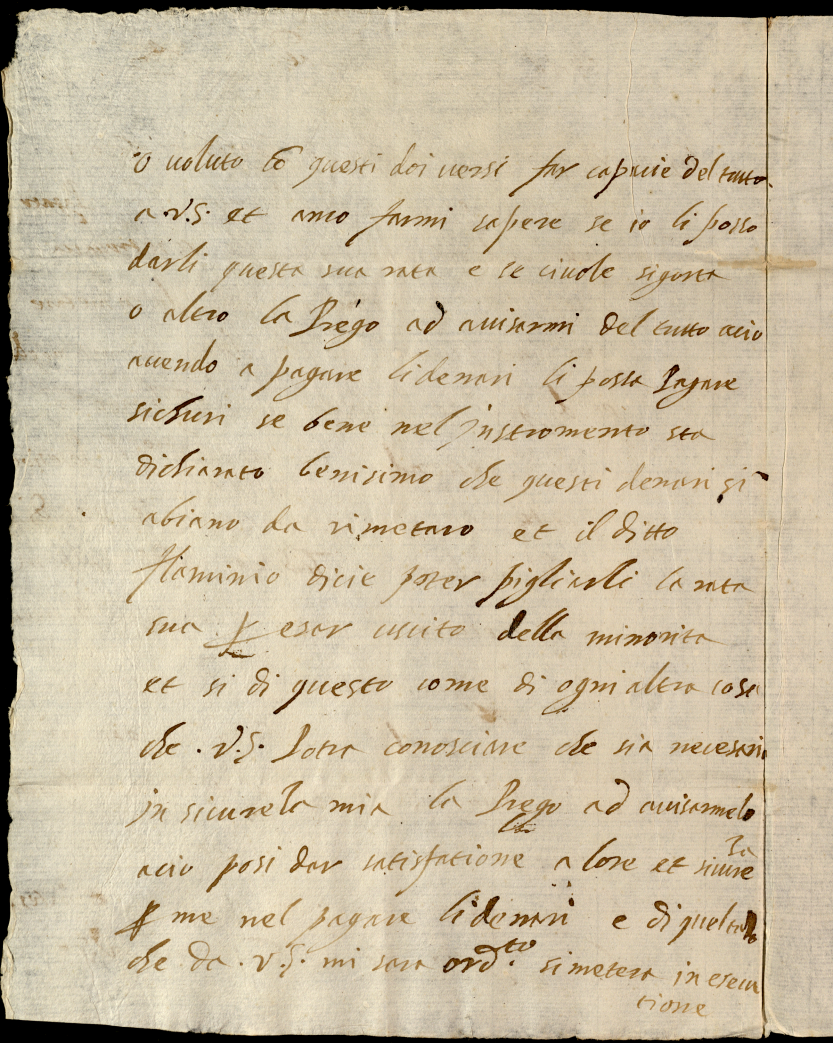 o voluto cō questi doi versi far capacie del tutto
a v.S. et anco farmi sapere se io li posso
darli questa sua rata e se civole sigorta
o altro la Prego ad avisarmi del tutto acio
avendo a pagare lidenari li possa Pagare
sichuri se bene nel instromento sta
dichiarato benisimo che questi denari si
abiano da rimetaro et il ditto
flaminio dicie poter pigliarli la rata
sua ꝑ esar uscito della minorita
et si di questo come di ogni altra cosa
che .v.S. Potra conosciare che sia necesaria
in sicureta mia la Prego ad avisarmelo
acio posi dar satisfatione a lore et sicure
ta
ꝑ me nel pagare lidenari e di quel tanto
che da .v.S. mi sara ord.to si metera in esecu
tione